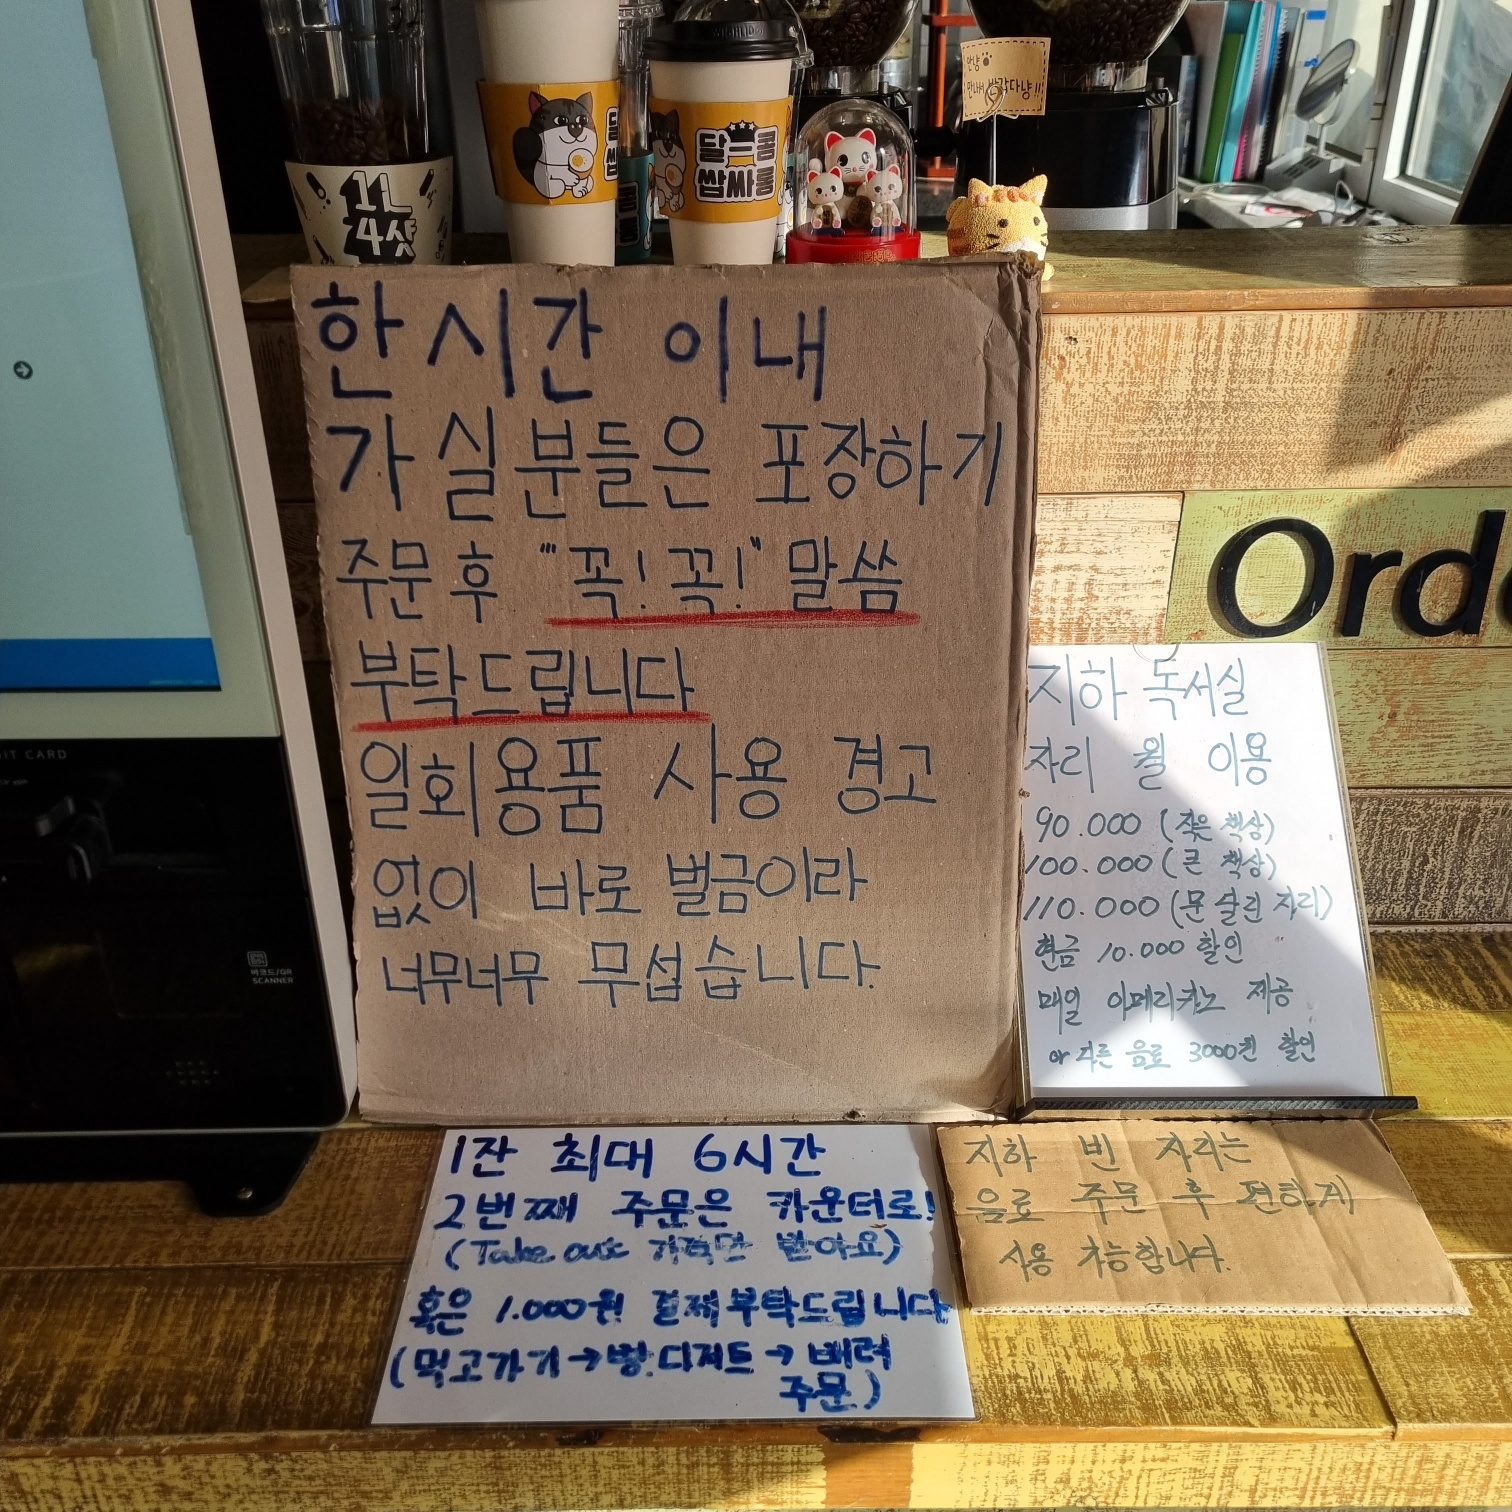 1L
4샷
달ㅡ롬
쌉싸롬
한시간 이내
가실분들은 포장하기
주문 후 "꼭! 꼭!" 말씀
부탁드립니다
일회용품 사용 경고
없이 바로 벌금이라
너무너무 무섭습니다.
Ord
지하 독서실
자리 월 이용
90.000 (작은 책상)
100.000 (큰 책상)
110.000 (문 달린 자리)
현금 10.000 할인
매일 아메리카노 제공
or 다른 음료 3000원 할인
바코드/QR
SCANNER
1잔 최대 6시간
2번째 주문은 카운터로!
(Take out 가격만 받아요)
혹은 1.000원 결제부탁드립니다
(먹고가기→빵.디저트→배려
주문)
지하 빈 자리는
음료 주문 후 편하게
사용 가능합니다.